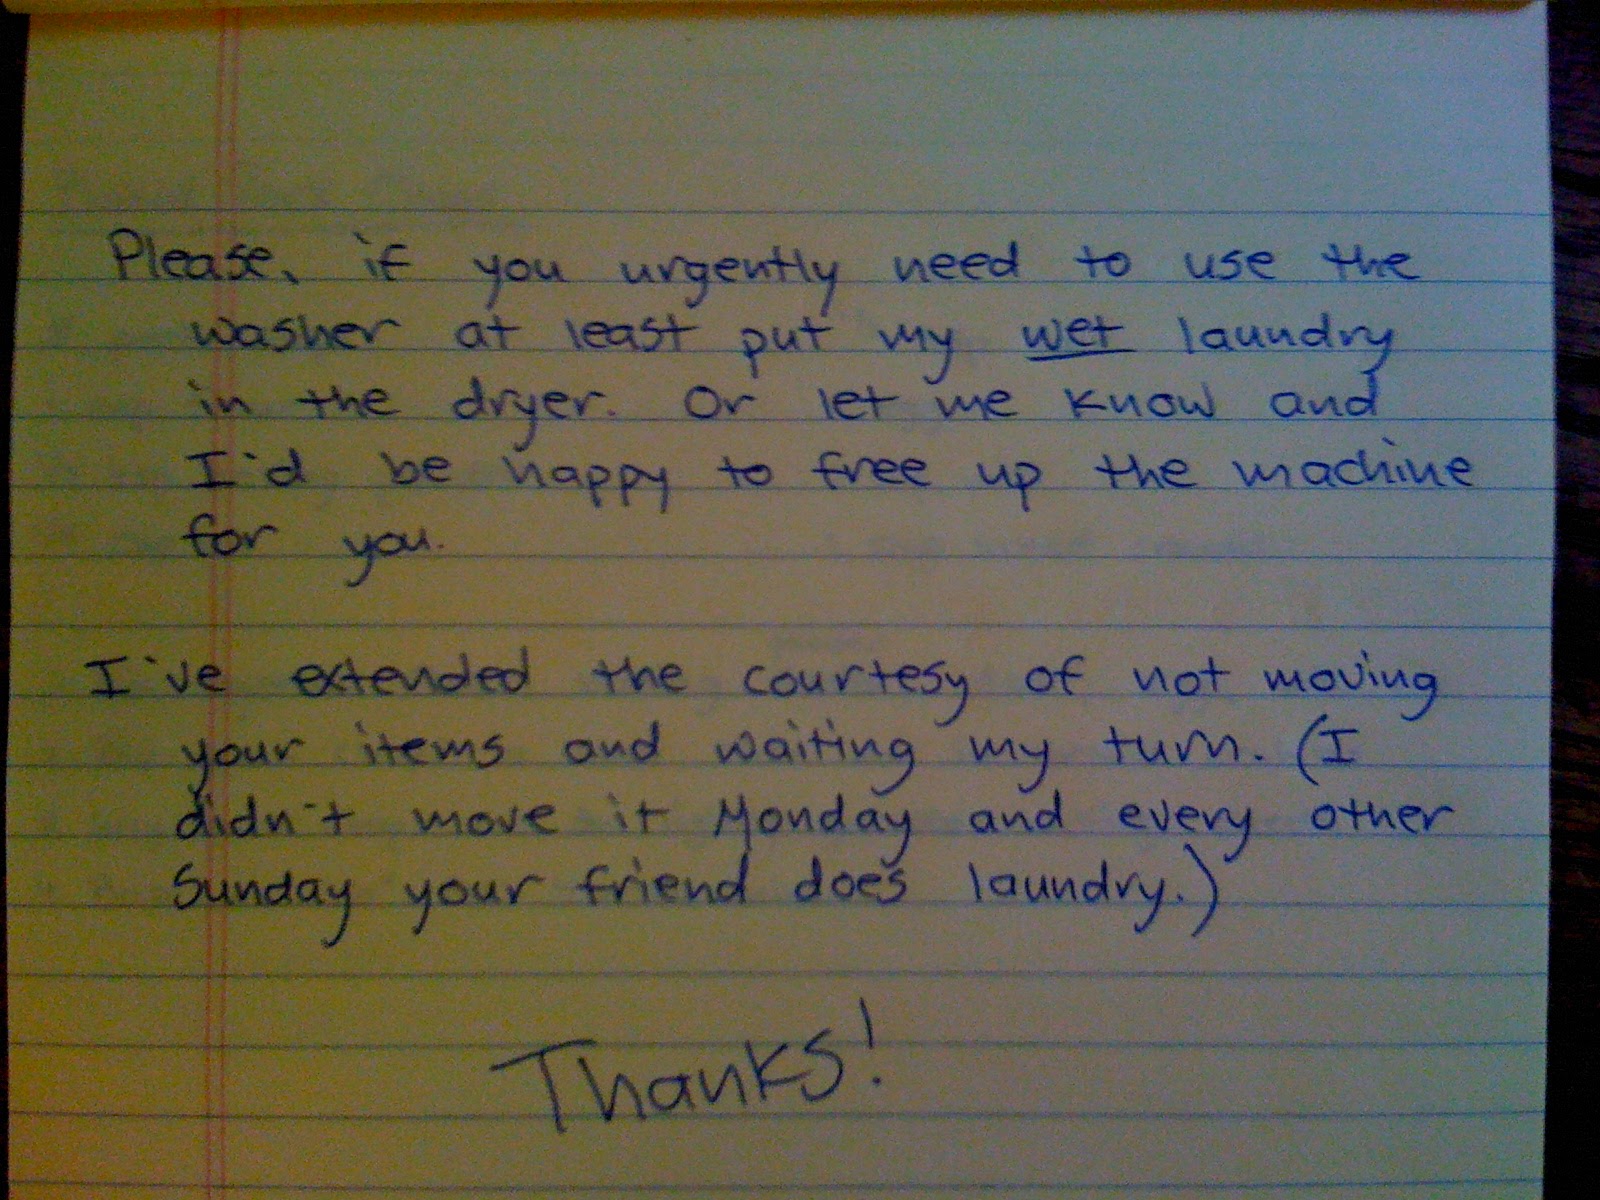 Please, if you urgently need to use the
washer at least put my wet laundry
in the dryer. Or let me know and
I'd be happy to free up the machine
for you.
I've extended the courtesy of not moving
your items and waiting my turn. (I
didn't move it Monday and every other
Sunday your friend does laundry.)
Thanks!